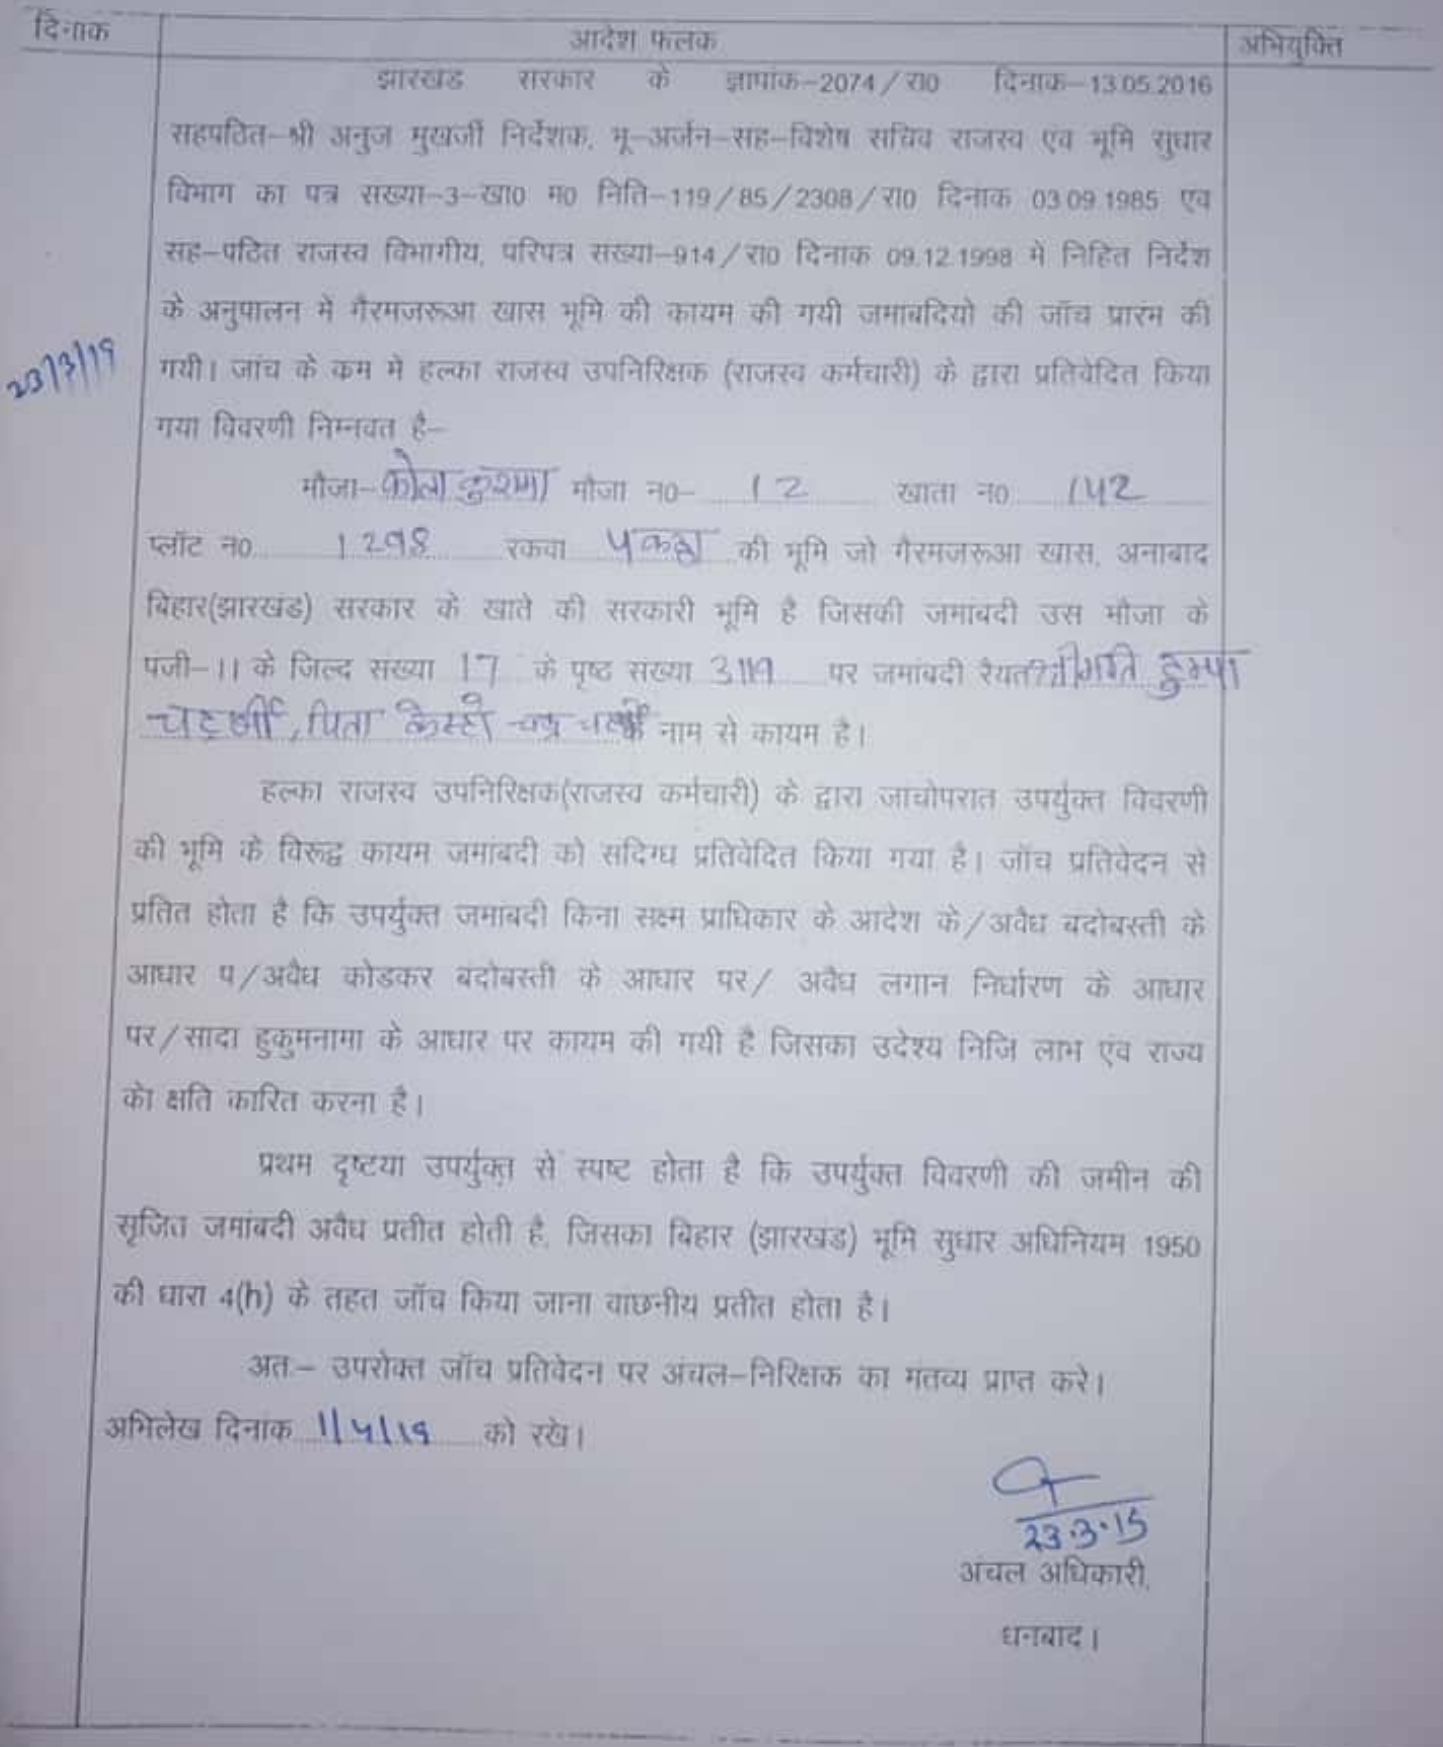 दिनाक आदेश फलक अभियुक्ति
झारखंड सरकार के ज्ञापांक-2074/रा0 दिनाक-13.05.2016
सहपठित-श्री अनुज मुखर्जी निर्देशक, भू-अर्जन-सह-विशेष सचिव राजस्व एवं भूमि सुधार
विभाग का पत्र सख्या-3-खा0 म0 निति-119/85/2308/रा0 दिनाक 03.09.1985 एव
सह-पठित राजस्व विभागीय, परिपत्र सख्या-914/रा0 दिनाक 09.12.1998 मे निहित निर्देश
के अनुपालन मे गैरमजरूआ खास भूमि की कायम की गयी जमाबदियो की जॉच प्रारंम की
23/3/19
गयी। जांच के कम मे हल्का राजस्व उपनिरिक्षक (राजस्व कर्मचारी) के द्वारा प्रतिवेदित किया
गया विवरणी निम्नवत है-
मौजा-कोला कुसमा मौजा न0- 12 खाता न0 142
प्लॉट न0 1298 रकवा 4 कट्ठा की भूमि जो गैरमजरूआ खास, अनाबाद
बिहार(झारखंड) सरकार के खाते की सरकारी भूमि है जिसकी जमाबदी उस मौजा के
पंजी-।। के जिल्द संख्या 17 के पृष्ट संख्या पर जमांबदी रैयत श्रीमति
चटर्जी, पिता नाम से कायम है।
हल्का राजस्व उपनिरिक्षक(राजस्व कर्मचारी) के द्वारा जाचोपरात उपर्युक्त विवरणी
की भूमि के विरूद्व कायम जमांबदी को सदिग्ध प्रतिवेदित किया गया है। जॉच प्रतिवेदन से
प्रतित होता है कि उपर्युक्त जमांबदी किना सक्ष्म प्राधिकार के आदेश के/अवैध बदोबस्ती के
आधार प/अवैध कोडकर बंदोबस्ती के आधार पर/ अवैध लगान निर्धारण के आधार
पर/सादा हुकुमनामा के आधार पर कायम की गयी है जिसका उदेश्य निजि लाभ एंव राज्य
को क्षति कारित करना है।
प्रथम दृष्टया उपर्युक्त से स्पष्ट होता है कि उपर्युक्त विवरणी की जमीन की
सृजित जमांबदी अवैध प्रतीत होती है, जिसका बिहार (झारखंड) भूमि सुधार अधिनियम 1950
की धारा 4(h) के तहत जॉच किया जाना वांछनीय प्रतीत होता है।
अत:- उपरोक्त जॉच प्रतिवेदन पर अंचल-निरिक्षक का मंतव्य प्राप्त करे।
अभिलेख दिनांक 1/4/19 को रखे।
23.3.15
अंचल अधिकारी,
धनबाद।